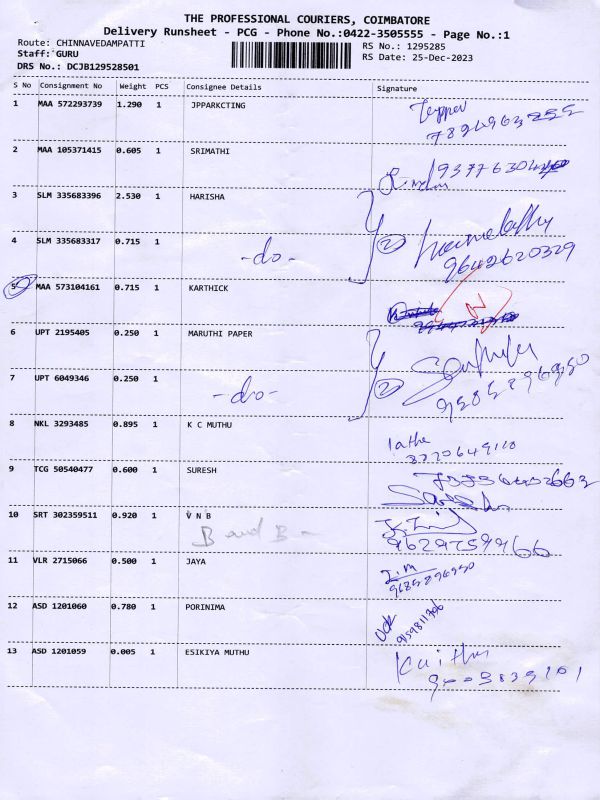 THE PROFESSIONAL COURIERS, COIMBATORE
Delivery Runsheet - PCG - Phone No.:0422-3505555 - Page No.:1
Route: CHINNAVEDAMPATTI
RS No.: 1295285
Staff: GURU
RS Date: 25-Dec-2023
DRS No.: DCJB129528501
S No Consignment No Weight PCS Consignee Details Signature
1 MAA 572293739 1.290 1 JPPARKCTING
2 MAA 105371415 0.605 1 SRIMATHI
3 SLM 335683396 2.530 1 HARISHA
4 SLM 335683317 0.715 1 -do- 2 9642620329
5 MAA 573104161 0.715 1 KARTHICK
6 UPT 2195405 0.250 1 MARUTHI PAPER
7 UPT 6049346 0.250 1 -do- 2
8 NKL 3293485 0.895 1 K C MUTHU
9 TCG 50540477 0.600 1 SURESH
10 SRT 302359511 0.920 1 V N B
B and B -
9629759966
11 VLR 2715066 0.500 1 JAYA
12 ASD 1201060 0.780 1 PORINIMA
13 ASD 1201059 0.005 1 ESIKIYA MUTHU